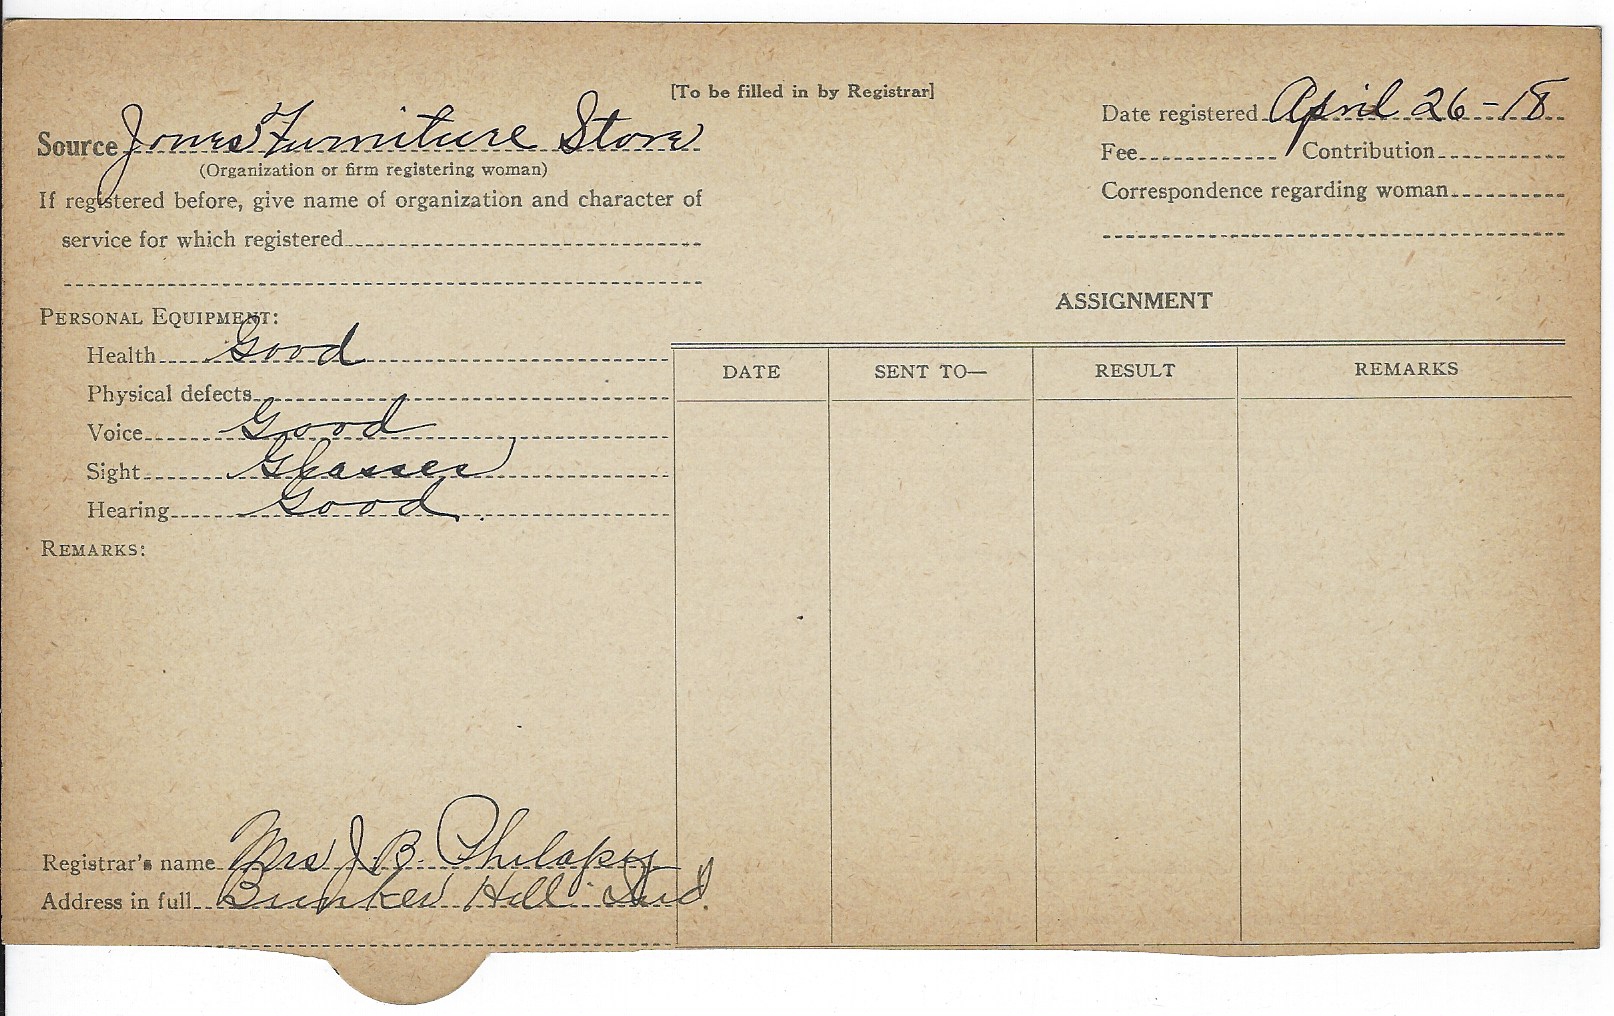 [To be filled in by Registrar]
Source Jones Furniture Store
(Organization or firm registering woman)
If registered before, give name of organization and character of
service for which registered
Date registered April 26-18
Fee Contribution
Correspondence regarding woman
PERSONAL EQUIPMENT:
Health Good
Physical defects
Voice Good
Sight Glasses
Hearing Good.
REMARKS:
ASSIGNMENT
DATE SENT TO— RESULT REMARKS
Registrar's name Mrs J. B. Philapy
Address in full Bunker Hill Ind.